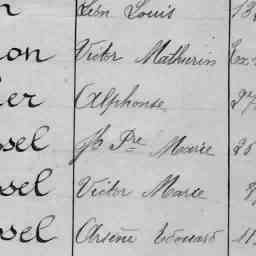 n Léon Louis 13
ion Victor Mathurin Ex
ier Alphonse 27
ssel Jh Pre Marie 25
ssel Victor Marie
ssel Arsène Edouard 11